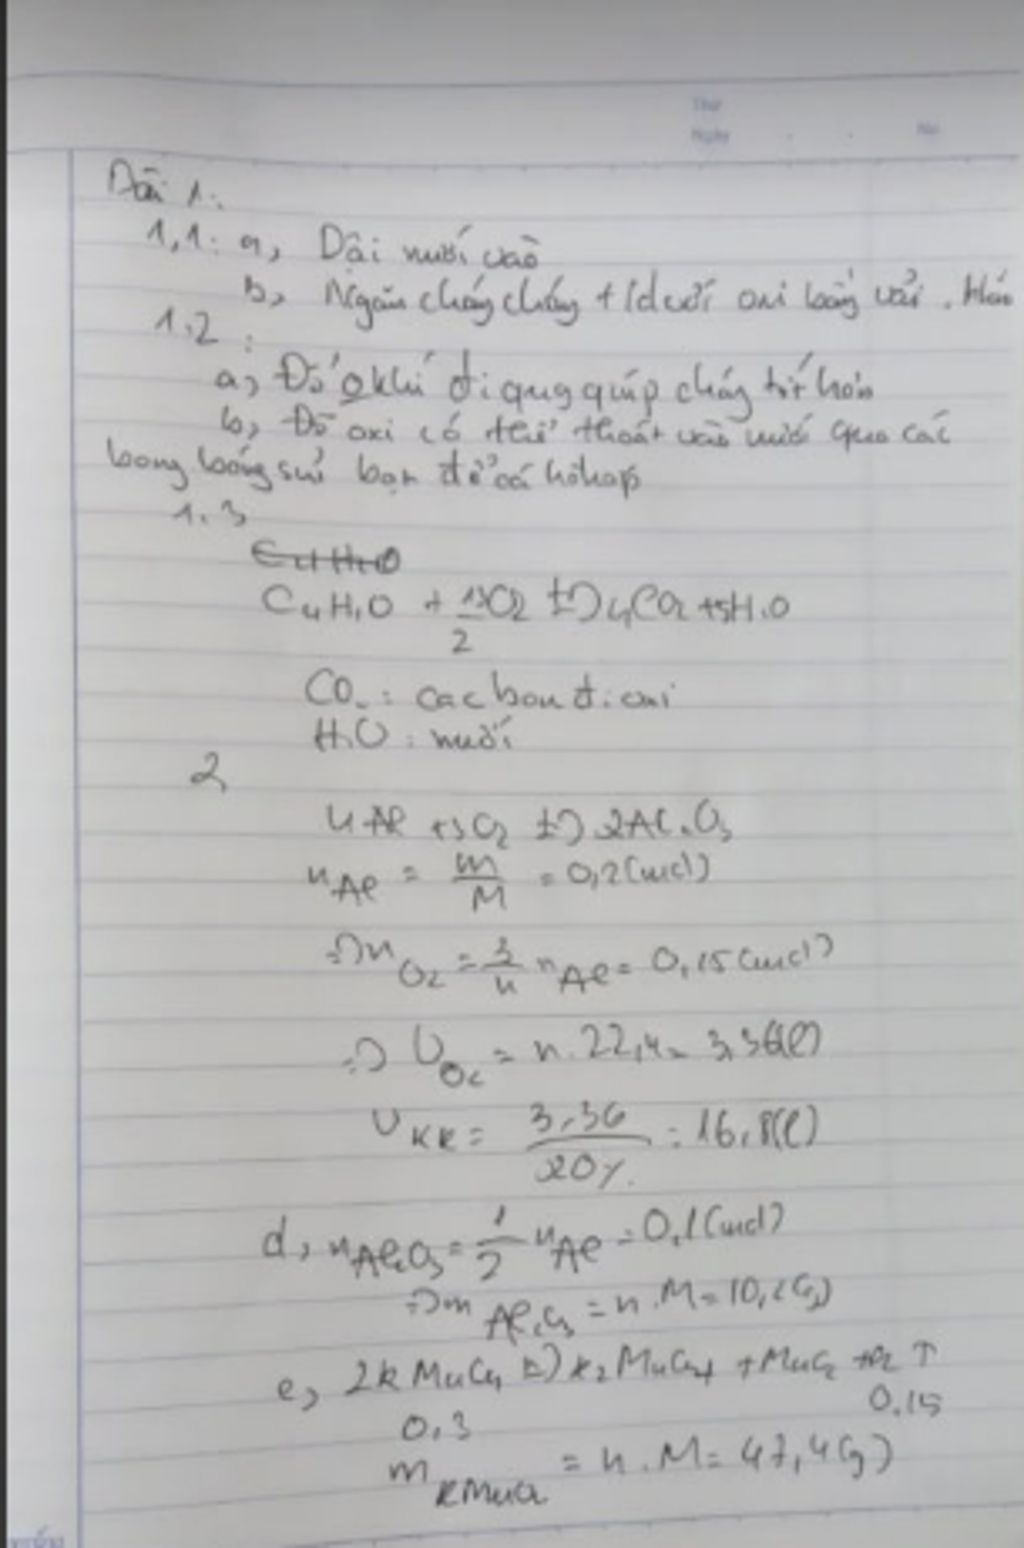 Thứ
Ngày
No
Bài 1:
1,1: a, Dội nước vào
b, Ngăn cháy + oxi
1.2:
a, Để khí đi qua giúp cháy tốt hơn
b, Để oxi có thể thoát vào nước qua các
bong bóng bạn để cá hô hấp
1.3
C4H10 + 13/2 O2 t⇒ 4CO2 + 5H2O
CO2: cacbon đi oxi
H2O: nước
2,
4Al + 3O2 t⇒ 2Al2O3
nAl = m/M = 0,2(mol)
⇒ nO2 = 3/4 nAl = 0,15(mol)
⇒ VO2 = n.22,4 = 3,36(l)
VKK = 3,36/20% = 16,8(l)
d, nAl2O3 = 1/2 nAl = 0,1(mol)
⇒ mAl2O3 = n.M = 10,2(g)
e, 2KMnO4 t⇒ K2MnO4 + MnO2 + O2 ↑
0,3 0,15
mKMnO4 = n.M = 47,4(g)